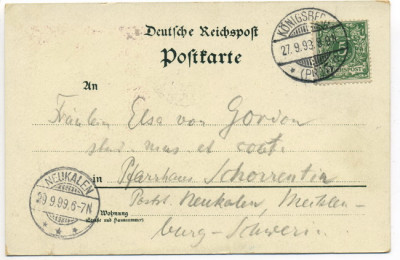 Deutsche Reichspost
Postkarte
KÖNIGSBERG
27.9.99.
(PR.)
An
Fräulein Elsa von Gordon
stud. mus et
in Pfarrhaus Schorrentin
NEUKALEN
29.9.99.6-7N
Postst. Neukalen, Mecklen-
Wohnung
(Straße und Hausnummer)
burg-Schwerin.